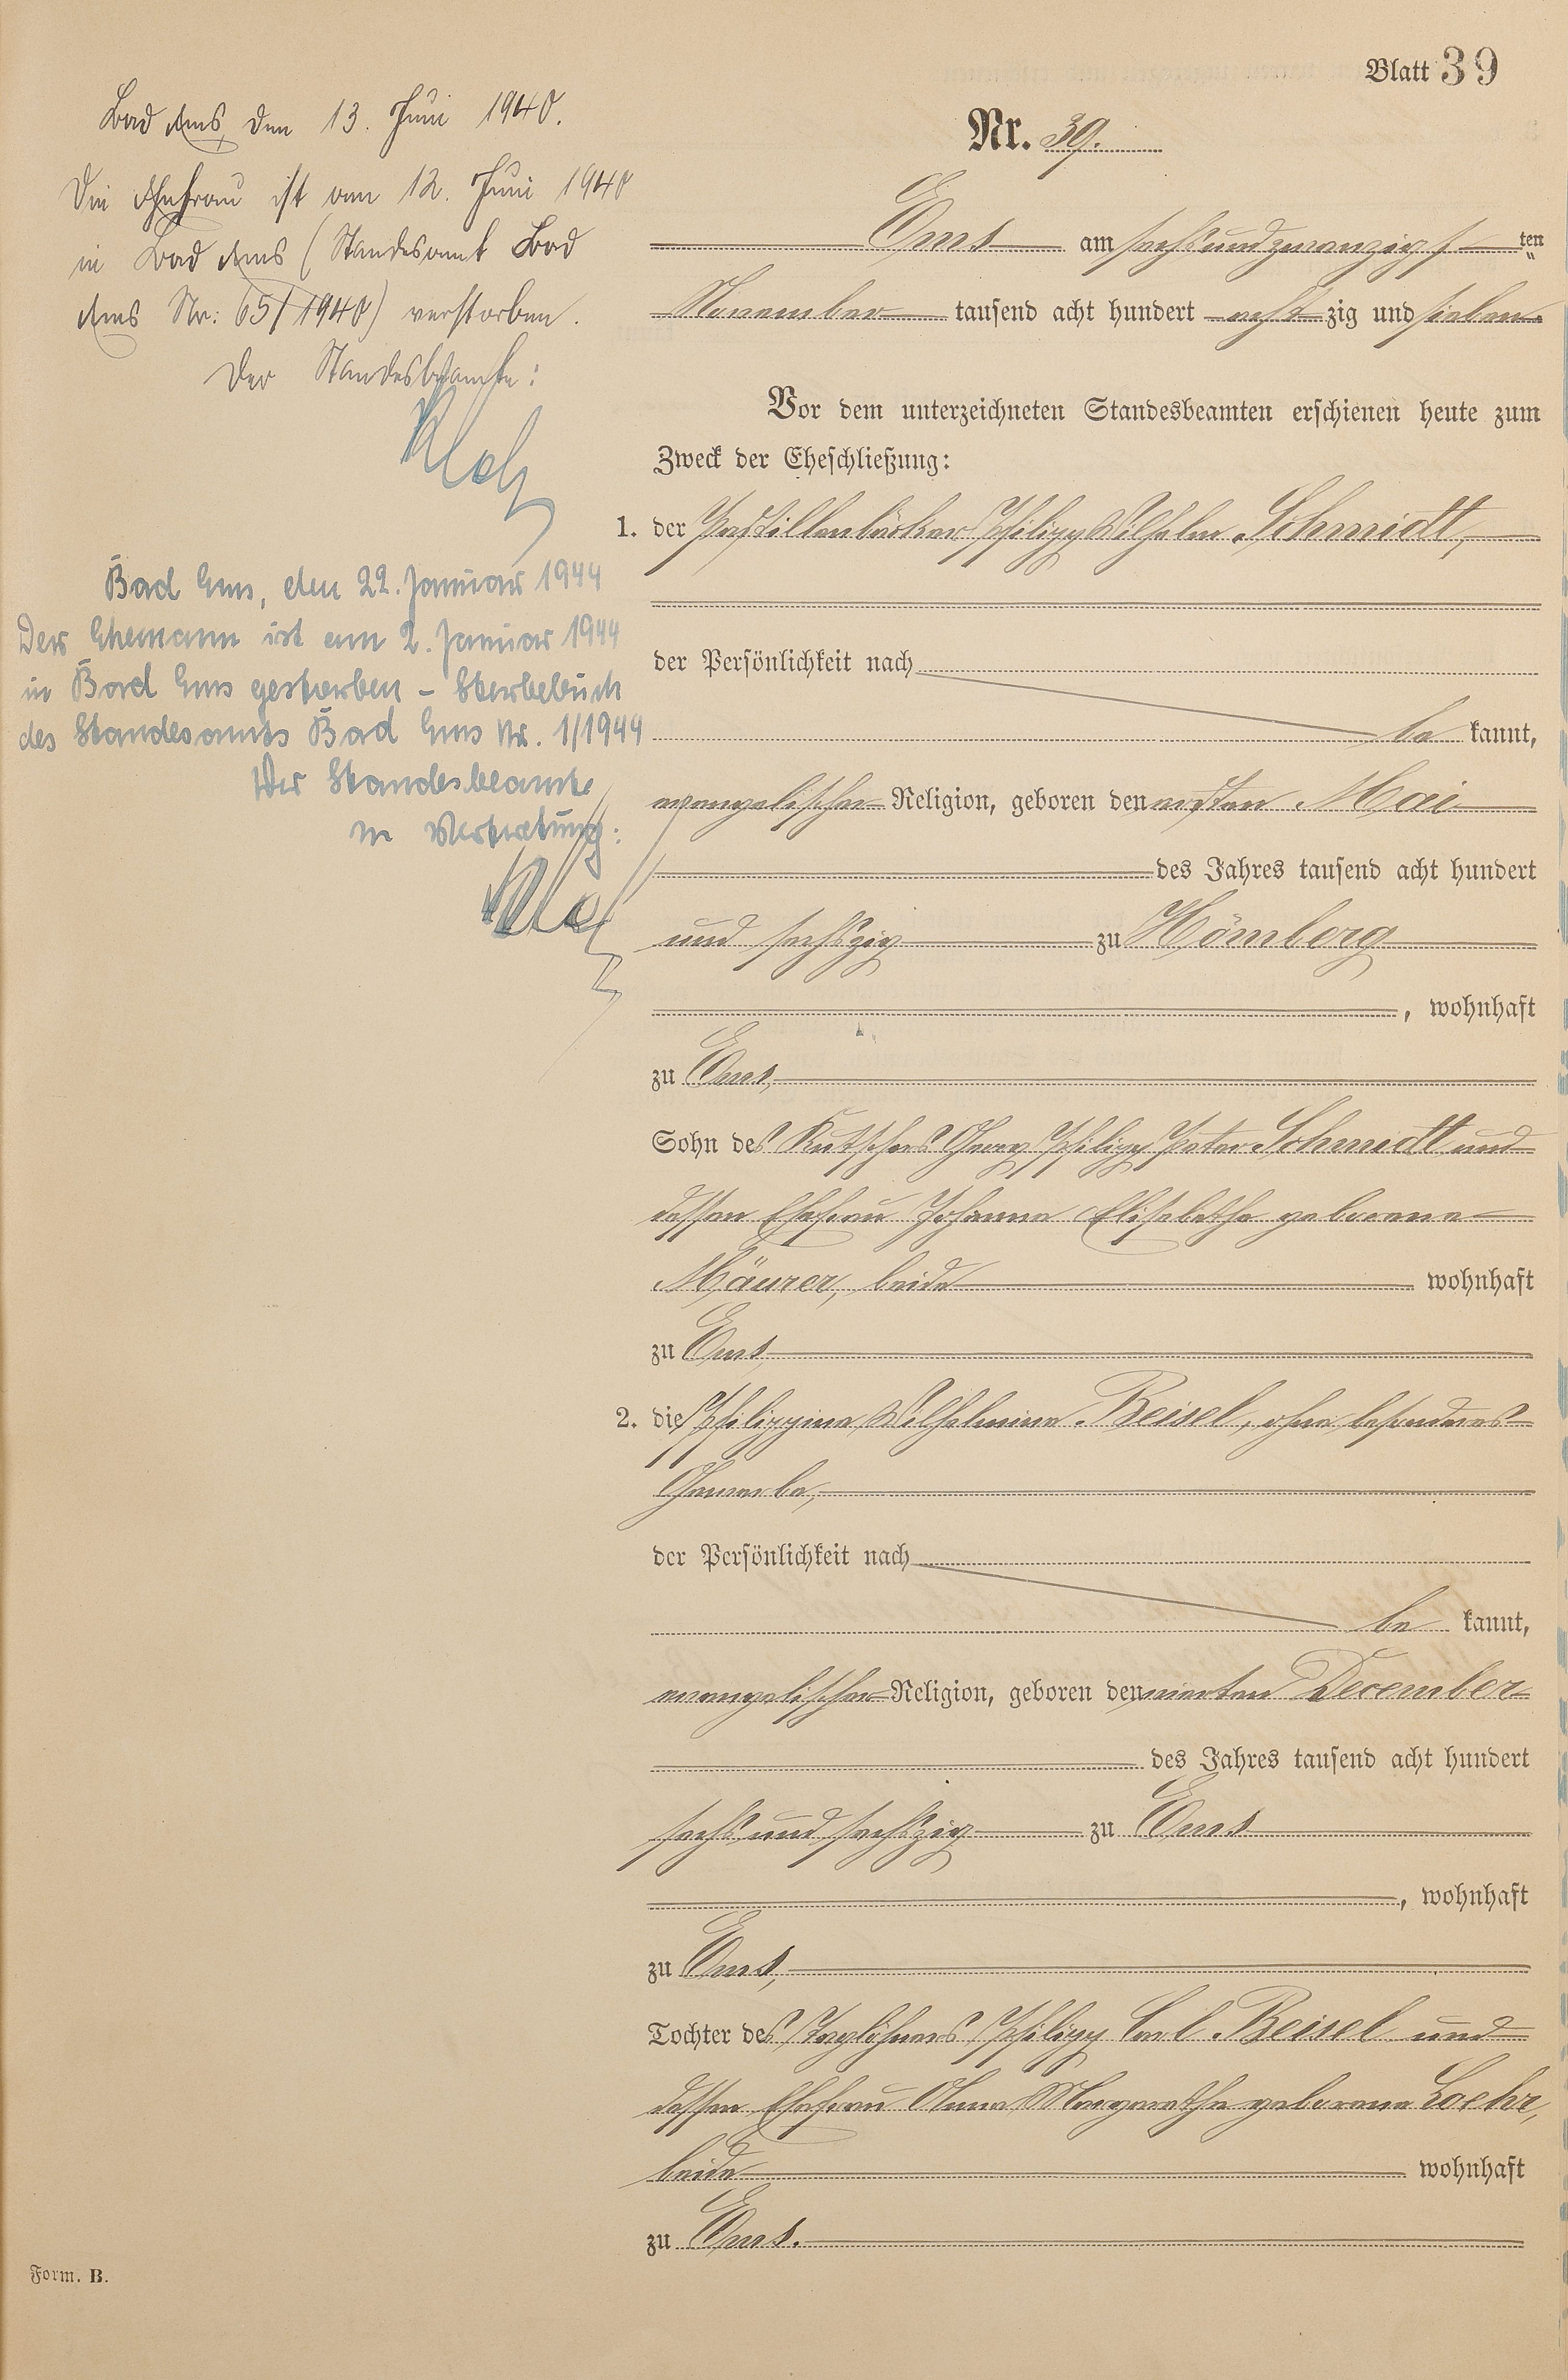 Blatt 39
Nr. 39.
Bad Ems, den 13. Juni 1940.
Die Ehefrau ist am 12. Juni 1940
in Bad Ems (Standesamt Bad
Ems Nr: 65/1940) verstorben.
Der Standesbeamte:
Bad Ems, den 22. Januar 1944
Der Ehemann ist am 2. Januar 1944
in Bad Ems gestorben – Sterbebuch
des Standesamts Bad Ems Nr. 1/1944
Der Standesbeamte
In Vertretung:
Ems am sechsundzwanzigsten
November tausend acht hundert achtzig und sieben
Vor dem unterzeichneten Standesbeamten erschienen heute zum
Zweck der Eheschließung:
1. der Pastillenbäcker Philipp Wilhelm Schmidt,
der Persönlichkeit nach
be kannt,
evangelischer Religion, geboren den ersten Mai
des Jahres tausend acht hundert
und sechszig zu Hömberg
, wohnhaft
zu Ems,
Sohn des Kutschers Georg Philipp Peter Schmidt und
dessen Ehefrau Johanna Elisabetha geborene
Mäurer, beide wohnhaft
zu Ems
2. die Philippina Wilhelmina Beisel, ohne besonderes
Gewerbe,
der Persönlichkeit nach
be kannt,
evangelischer Religion, geboren den vierten December
des Jahres tausend acht hundert
sechs und sechszig zu Ems
, wohnhaft
zu Ems,
Tochter des Taglöhners Philipp Carl Beisel und
dessen Ehefrau Anna Margaretha geborene Loehr,
beide wohnhaft
zu Ems.
Form. B.